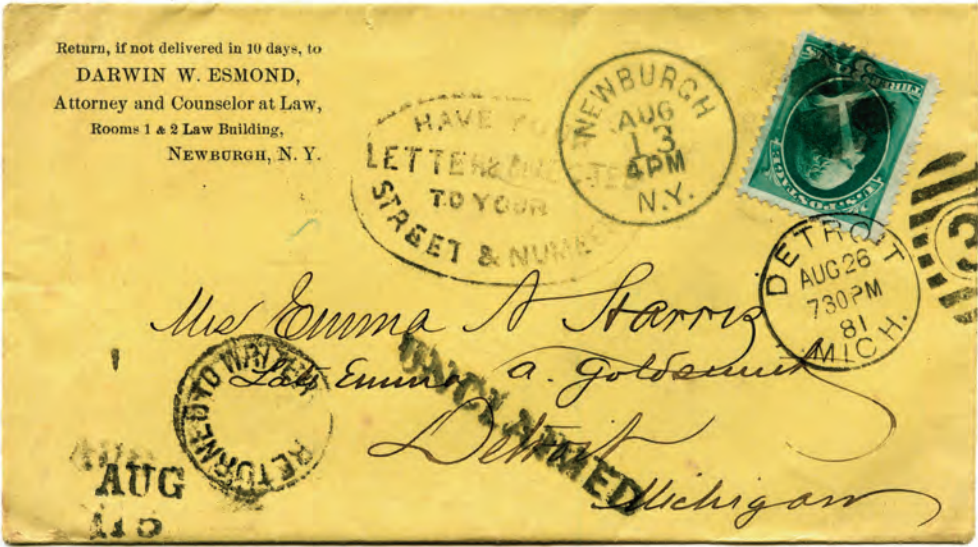 Return, if not delivered in 10 days, to
DARWIN W. ESMOND,
Attorney and Counselor at Law,
Rooms 1 & 2 Law Building,
NEWBURGH, N. Y.
HAVE YO
LETTERS
TO YOUR
STREET & NUMBE
NEWBURGH
AUG
13
4PM
N.Y.
DETROIT
AUG 26
730PM
81
MICH.
3
Mrs Emma A Harris
Late Emma A. Goldsmith
Detroit
Michigan
UNCLAIMED
RETURNED TO WRITER
AUG